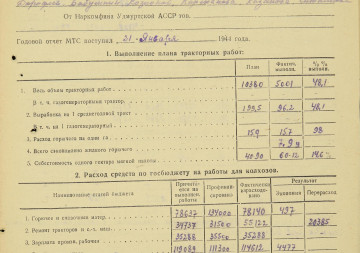 От Наркомфина Удмуртской АССР тов.
Годовой отчет МТС поступил 21 января 1941 года.
1. Выполнение плана тракторных работ:
План Фактич. выполн. % % выполн.
1. Весь объем тракторных работ 10380 5001 48,1
В т. ч. газогенераторными трактор.
2. Выработка на 1 среднегодовой тракт. 199,5 96,2 48,1
В т. ч. на 1 газогенераторный
3. Расход горючего на один га 15,9 15,7 98
4. Всего сэкономлено
5. Себестоимость одного гектара мягкой пахоты 40-90 60-12
2. Расход средств по госбюджету на работы для колхозов.
Наименование статей бюджета Причитается на выполнен. работы Профинансировано Фактически израсходовано Результат
Экономия Перерасход
1. Горючее и смазочные матер. 78637 78140 497
2. Ремонт тракторов и с.-х. маш. 34737 31500 55122 20385
3. Зарплата произв. рабочим 35288 35500 35288
119089 111300 114612 4477